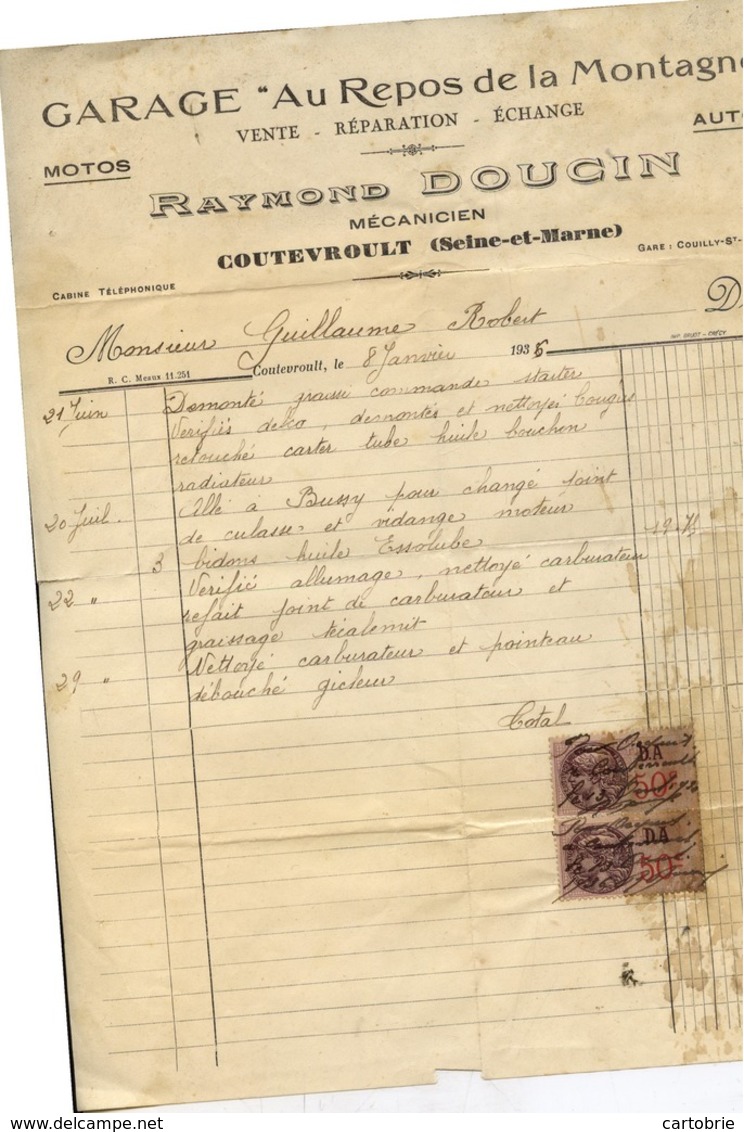 GARAGE "Au Repos de la Montagne
VENTE - RÉPARATION - ÉCHANGE
MOTOS
AUTO
RAYMOND DOUCIN
MÉCANICIEN
COUTEVROULT (Seine-et-Marne)
CABINE TÉLÉPHONIQUE
GARE : COUILLY-ST-
Monsieur Guillaume Robert D
IMP. DRUOT - CRÉCY
R. C. MEAUX 11.251
Coutevroult, le 8 Janvier 1936
21 Juin Demonté graissé commande starter
Verifiés delco, demontés et nettoyés bougies
retouché carter tube huile bouchon
radiateur
20 Juil. Allé à Bussy pour changé joint
de culasse et vidange moteur
3 bidons huile Essolube 19.75
22 " Verifié allumage, nettoyé carburateur
refait joint de carburateur et
graissage técalemit
29 " Nettoyé carburateur et pointeau
débouché gicleur
Total
D.A
50c
D.A
50c
cartobrie